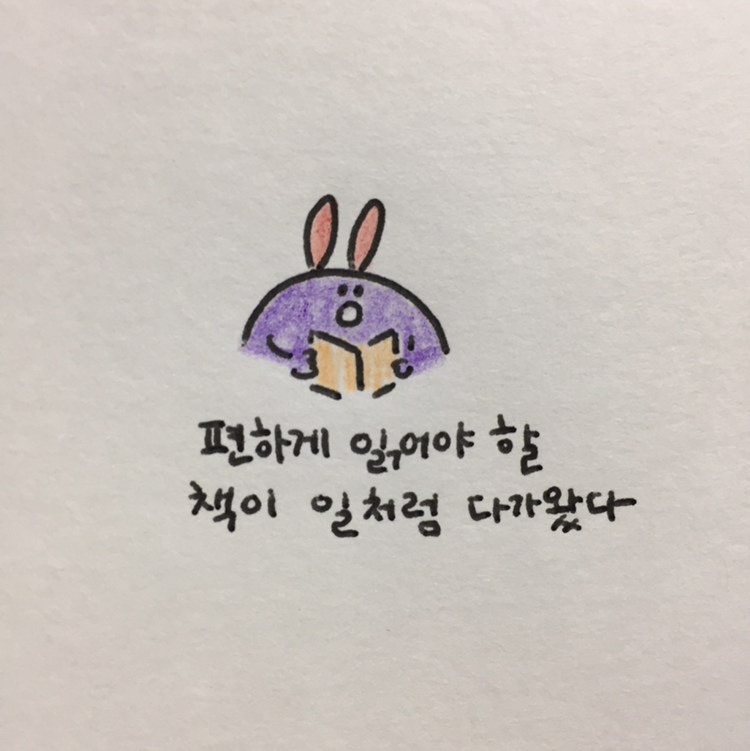 편하게 읽어야 할
책이 일처럼 다가왔다